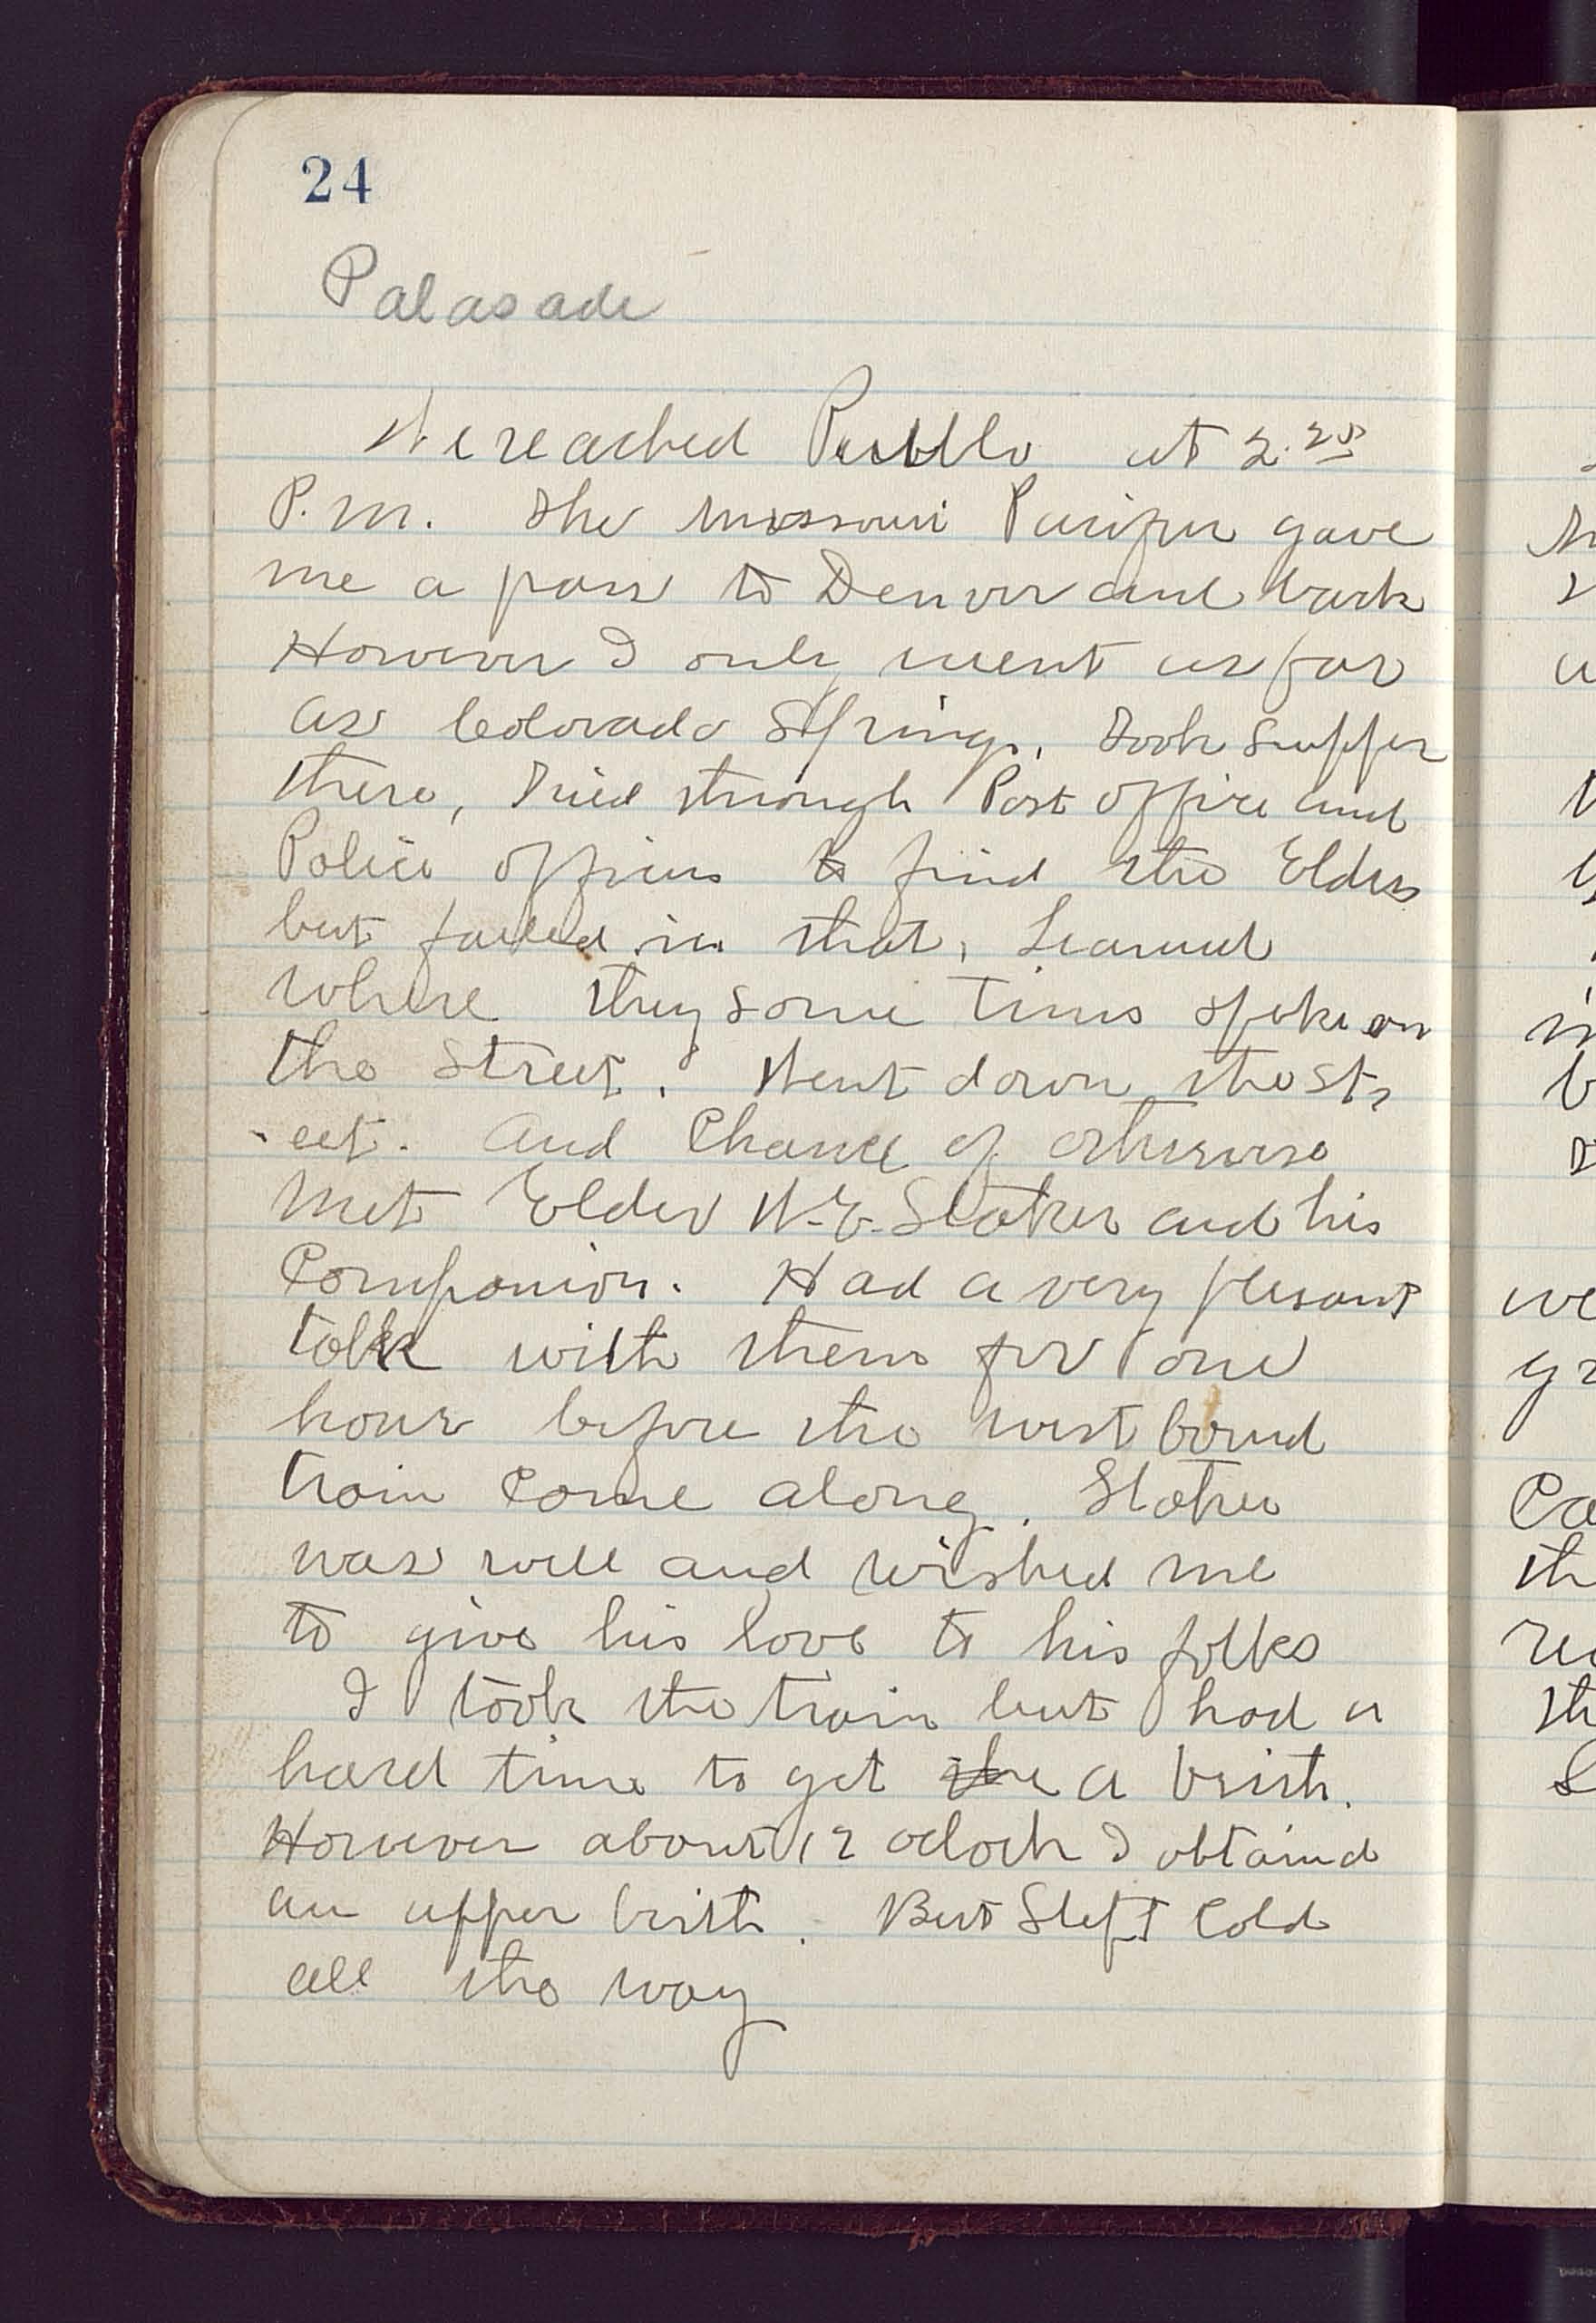 24
Palasade
We reached Pueblo at 2.25
P.M. The Missouri Pacific gave
me a pass to Denver and back
However I only went as far
as Colorado Springs. Took supper
there, Tried through Post office and
Police offices to find the Elders
but failed in that, Learned
where they some times spoke on
the street. Went down the str
-eet. And Chance of otherwise
Met Elder W.E. Stoker and his
Companion. Had a very plesant
talk with them for one
hour before the west bound
train come along. Stoker
was well and wished me
to give his love to his folks
I took the train but had a
hard time to get the a brith.
However about 12 oclock I obtaind
an upper brith. But Slept Cold
all the way